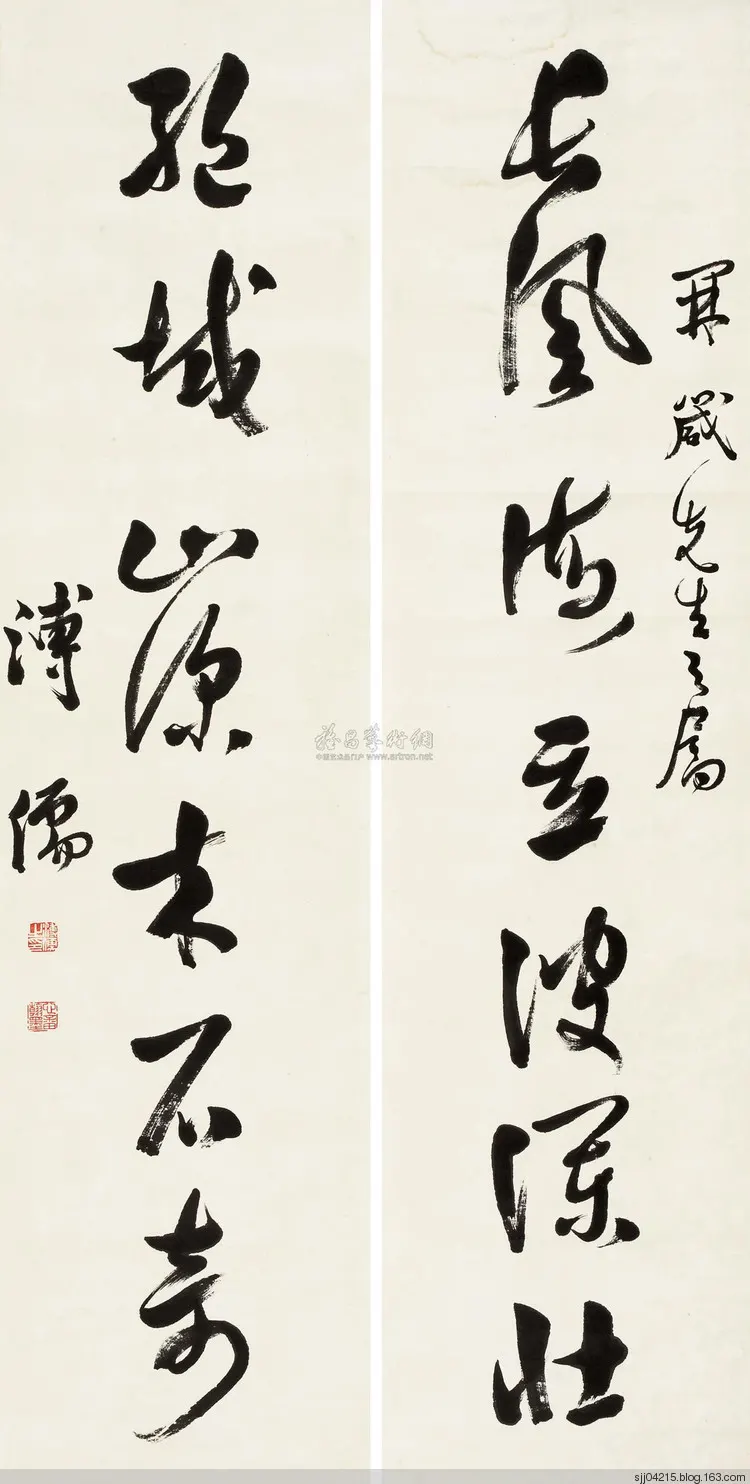 開箴先生之屬
長風海立波瀾壯
絕域山深木石奇
溥儒
雅昌藝術網
www.artron.net
sjj04215.blog.163.com